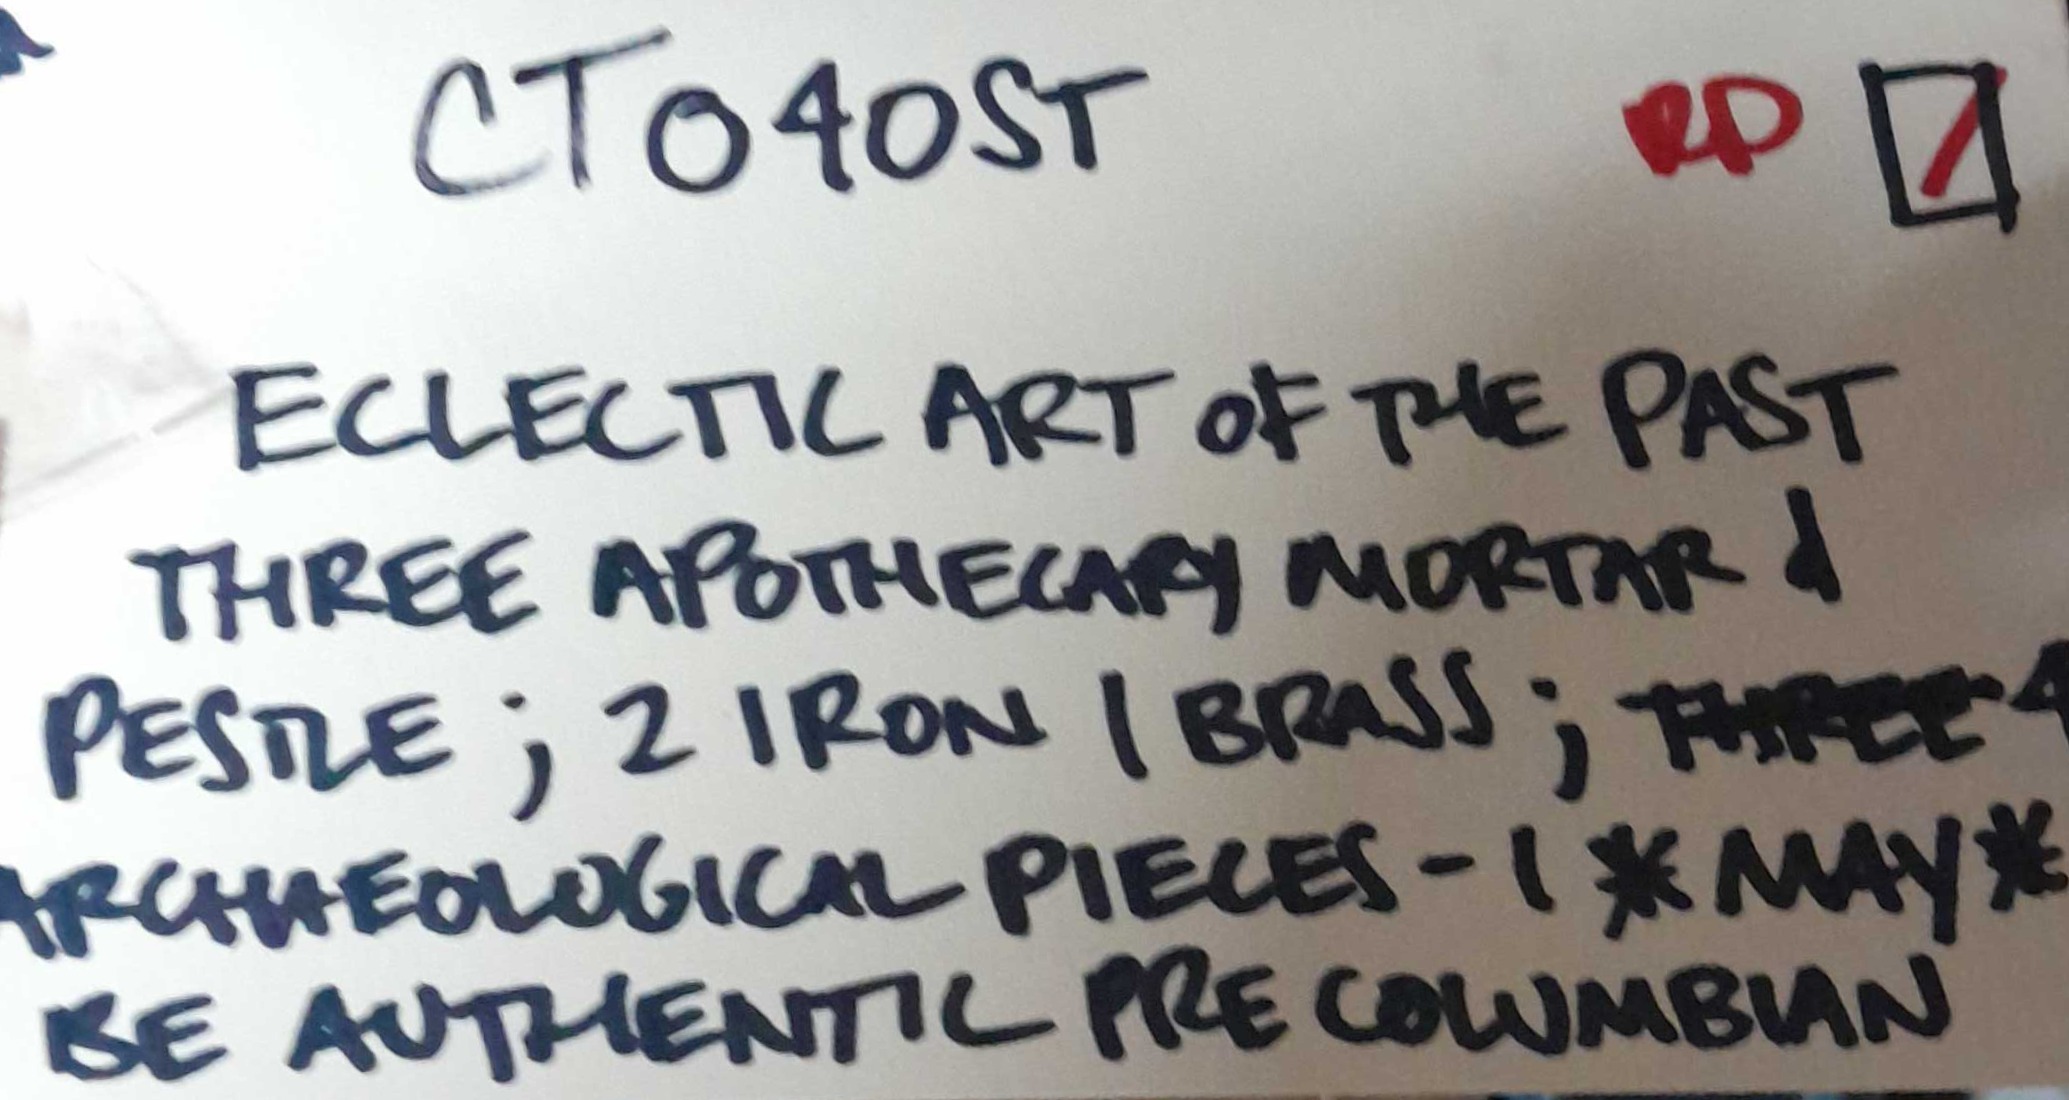 CT040ST RD
ECLECTIC ART OF THE PAST
THREE APOTHECARY MORTAR &
PESTLE ; 2 IRON 1 BRASS ; THREE 4
ARCHAEOLOGICAL PIECES - 1 * MAY *
BE AUTHENTIC PRE COLUMBIAN